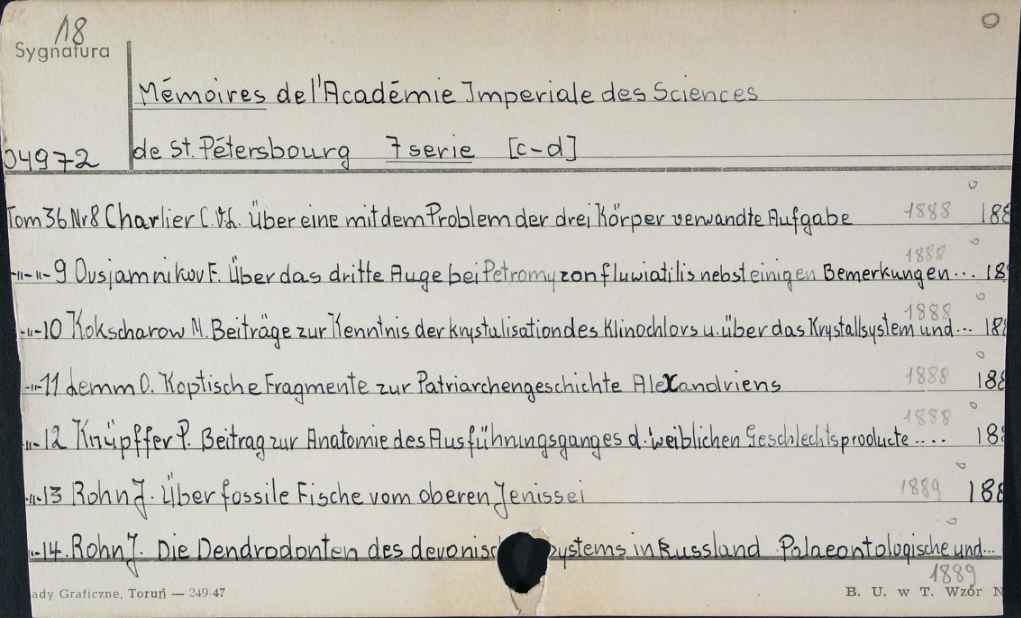 18
Sygnatura
Mémoires de l'Académie Imperiale des Sciences
04972 de St. Pétersbourg 7 serie [c-d]
Tom 36 Nr 8 Charlier C. V. L. Über eine mit dem Problem der drei Körper verwandte Aufgabe 1888 188
-"-"-9 Ovsjamnikov F. Über das dritte Auge bei Petromyzon fluwiatilis nebst einigen Bemerkungen... 1888 18
-"-10 Kokscharow N. Beiträge zur Kenntnis der krystalisation des Klinochlors u. über das Krystallsystem und... 1888 188
-"-11 Lemm O. Koptische Fragmente zur Patriarchengeschichte Alexandriens 1888 188
-"-12 Knüpffer P. Beitrag zur Anatomie des Ausführungsganges d. weiblichen Geschlechtsproducte.... 1888 188
-"-13 Rohn J. Über fossile Fische vom oberen Jenissei 1889 188
-"-14. Rohn J. Die Dendrodonten des devonisc ystems in Russland Palaeontologische und...
1889
ady Graficzne, Toruń — 249-47 B. U. w T. Wzór N